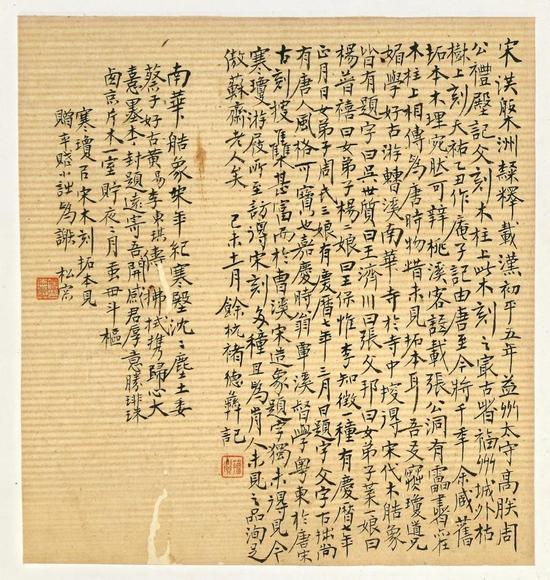 宋洪槃洲隸釋載漢初平五年益州太守高朕周
公禮殿記文刻木柱上此木刻之最古者福州城外枯
樹上刻天祐乙作庵子記由唐至今將千年余咸舊
拓本木理宛肰可辨桃溪客語載張公洞有靁書在
木柱上相傳為唐時物惜未見拓本耳吾友寒瓊道兄
媚學好古游轉溪南華寺於寺中搜得宋代木皓象
皆有題字曰吳世質曰王濟川曰張文邦曰女弟子葉一娘曰
楊普禧曰女弟子楊二娘曰王保惟李知徵一種有慶曆七年
正月日女弟子周氏三娘有慶曆七年三月日題字文字古拙尚
有唐人風格可寶也嘉慶時翁覃溪督學粵東於唐宋
古刻搜集甚富而於曹溪宋造象題字獨未得見今
寒瓊游屐所至訪得宋刻多種且為昔人未見之品洵足
傲蘇齋老人矣 己未十一月 餘杭褚德彝記
南華皓象宋年紀寒壁沈沈塵土委
蔡子好古黃易李東琪拂拭攜歸心大
喜墨本封題遠寄吾開函感君厚意勝琲珠
鹵京片木一室貯夜夜月虽毌斗樞
寒瓊以宋木刻拓本見
贈率賦小詩為謝 松窗